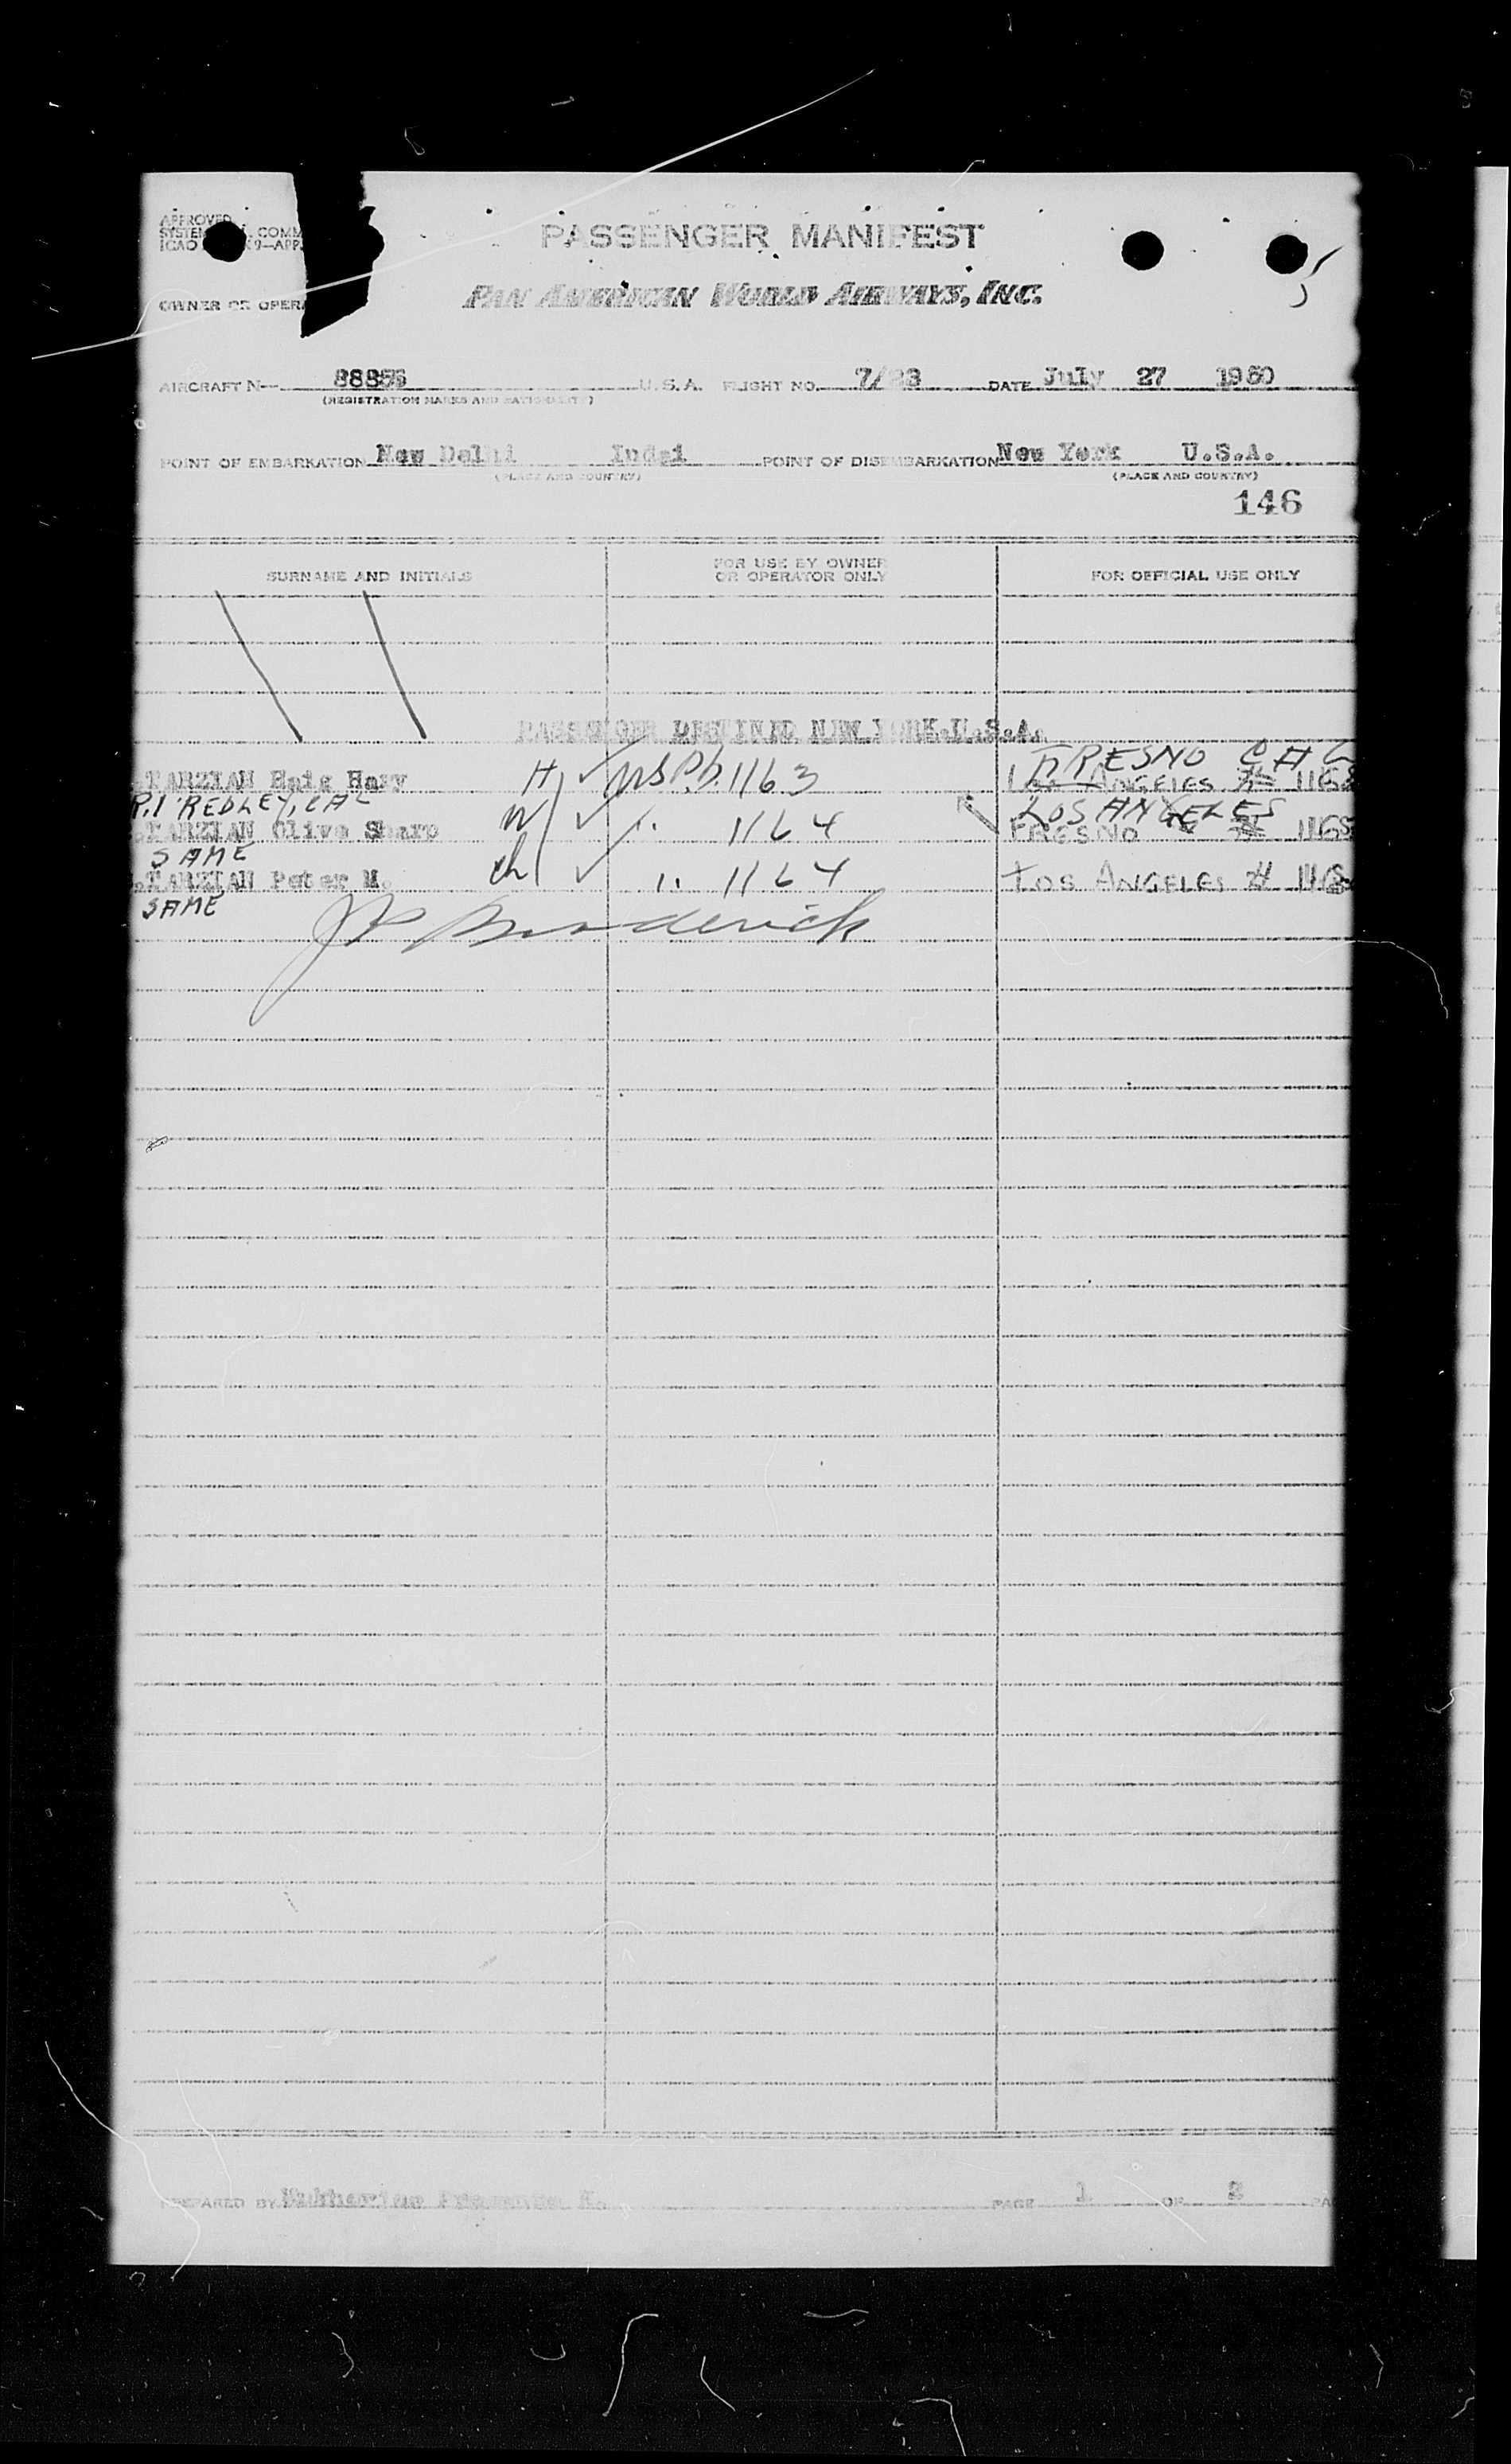 APPROVED
SYSTEM COMM
ICAO 9—APP.
PASSENGER MANIFEST
OWNER OR OPERA
PAN AMERICAN WORLD AIRWAYS, INC.
AIRCRAFT N— U.S.A. FLIGHT NO. DATE July 27
(REGISTRATION MARKS AND NATIONALITY)
POINT OF EMBARKATION New Delhi Indai POINT OF DISEMBARKATION New York U.S.A.
(PLACE AND COUNTRY) (PLACE AND COUNTRY)
146
SURNAME AND INITIALS FOR USE BY OWNER OR OPERATOR ONLY FOR OFFICIAL USE ONLY
PASSENGER DESTINED NEW YORK.U.S.A.
FRESNO CAL
TARZIAN Hary H 1163 LOS ANGELES
R.1 REDLEY, CAL LOS ANGELES
TARZIAN Olive Sharp W 1164 FRESNO
SAME
TARZIAN Peter M. Ch 1164 LOS ANGELES
SAME
Broderick
PREPARED BY PAGE 1 OF 2 PA